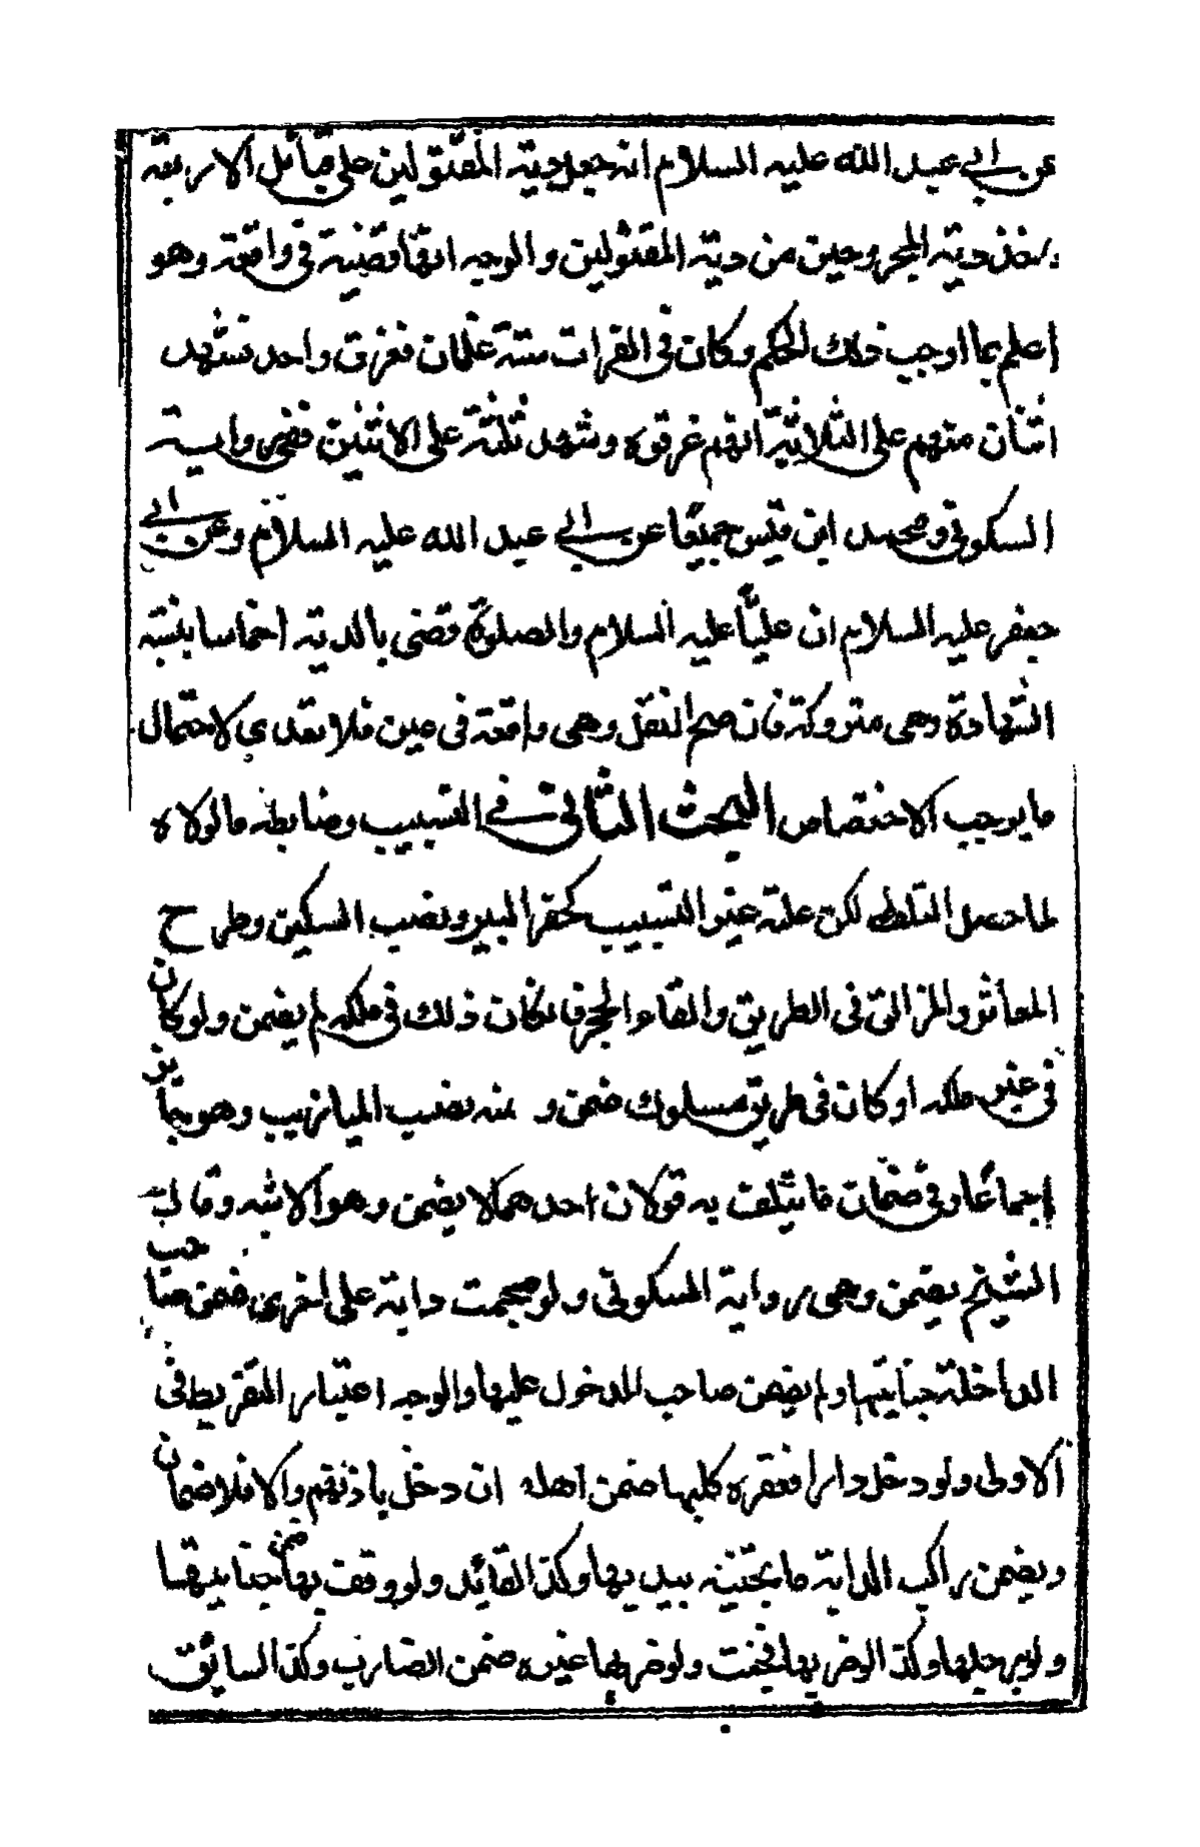 عن ابي عبد الله عليه السلام انه جعل دية المقتولين على قبائل الاربعة
واخذ دية المجروحين من دية المقتولين والوجه انها قضية في واقعة وهو
اعلم بما اوجب ذلك الحكم وكان في الفرات ستة غلمان فغرق واحد فشهد
اثنان منهم على الثلاثة انهم غرقوه وشهد ثلثة على الاثنين ففي رواية
السكوني ومحمد ابن قيس جميعا عن ابي عبد الله عليه السلام وعن ابي
جعفر عليه السلام ان عليا عليه السلام والصلوة قضى بالدية اخماسا بنسبة
الشهادة وهي متروكة فان صح النقل وهي واقعة في عين فلا يتعدى لاحتمال
ما يوجب الاختصاص البحث الثاني في التسبيب وضابطه ما لولاه
لما حصل التلف لكن علة غير التسبيب كحفر البير ونصب السكين وطرح
المعاثر والمزالق في الطريق والقاء الحجر فان كان ذلك في ملكه لم يضمن ولو كان
في غير ملكه او كان في طريق مسلوك ضمن و منه نصب الميازيب وهو جايز
اجماعا وفي ضمان ما يتلف به قولان احدهما لا يضمن وهو الاشبه وقال
الشيخ يضمن وهي رواية السكوني ولو هجمت دابة على اخرى ضمن صاحب
الداخلة جنايتها ولم يضمن صاحب المدخول عليها والوجه اعتبار التفريط في
الاولى ولو دخل دارا فعقره كلبها ضمن اهله ان دخل باذنهم والا فلا ضمان
ويضمن راكب الدابة ما تجنيه بيديها وكذا القائد ولو وقف بها ضمن جنايتها
ولو برجليها وكذا لو ضربها فجنت ولو ضربها غيره ضمن الضارب وكذا السائق